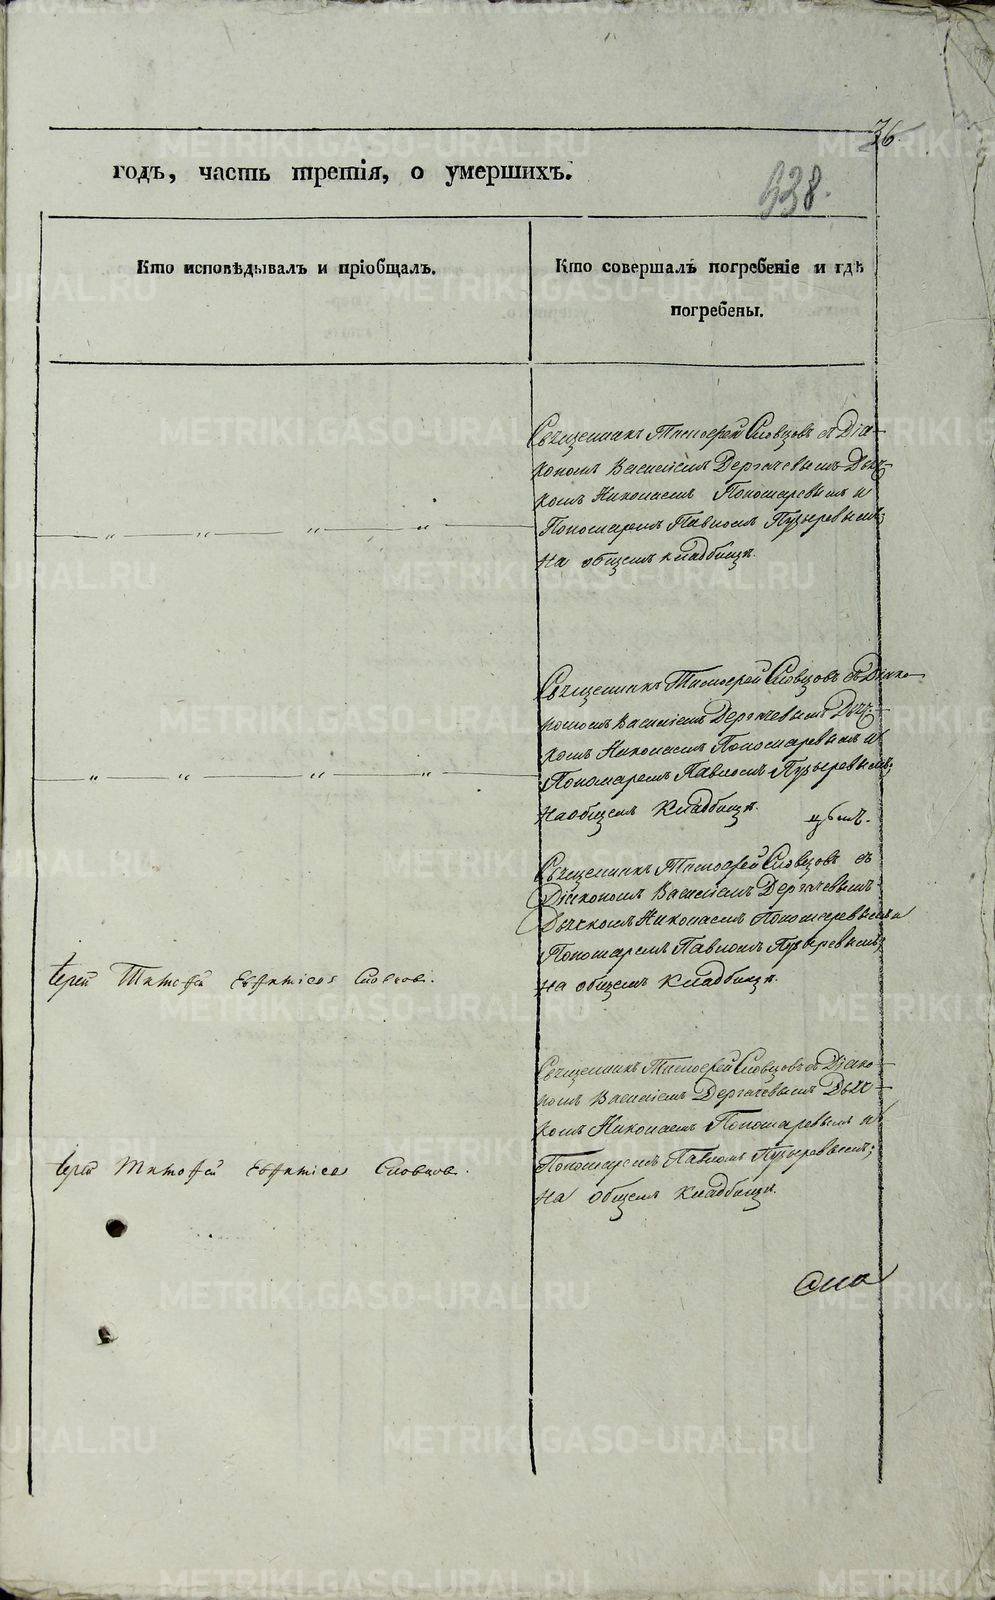 36.
годъ, часть третія, о умершихъ.
938.
Кто исповѣдывалъ и пріобщалъ.
Кто совершалъ погребеніе и гдѣ
погребены.
Священникъ Тимофей Словцовъ съ Діа-
кономъ Василіемъ Дергачевымъ Дьяч-
комъ Николаемъ Пономаревымъ и
Пономаремъ Павломъ Пузыревымъ;
на общемъ кладбищѣ.
Священникъ Тимофей Словцовъ съ Діако-
номъ Василіемъ Дергачевымъ Дьяч-
комъ Николаемъ Пономаревымъ и
Пономаремъ Павломъ Пузыревымъ;
на общемъ кладбищѣ.
Священникъ Тимофей Словцовъ съ
Діакономъ Василіемъ Дергачевымъ
Дьячкомъ Николаемъ Пономаревымъ и
Пономаремъ Павломъ Пузыревымъ;
на общемъ кладбищѣ.
Іерей Тимофей Словцовъ.
Священникъ Тимофей Словцовъ съ Діако-
номъ Василіемъ Дергачевымъ Дьяч-
комъ Николаемъ Пономаревымъ и
Пономаремъ Павломъ Пузыревымъ;
на общемъ кладбищѣ.
Іерей Тимофей Словцовъ.
METRIKI.GASO-URAL.RU